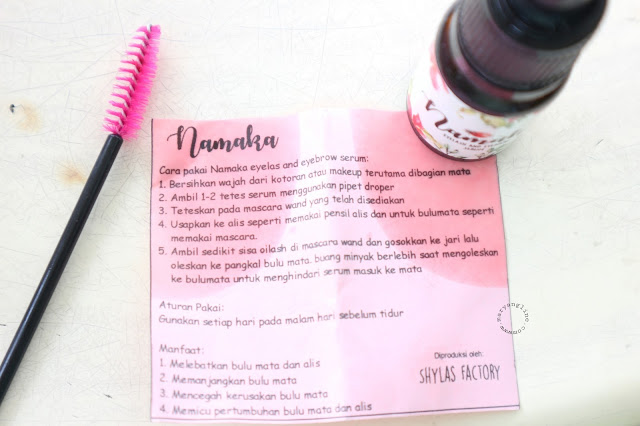 Namaka
Cara pakai Namaka eyelas and eyebrow serum:
1. Bersihkan wajah dari kotoran atau makeup terutama dibagian mata
2. Ambil 1-2 tetes serum menggunakan pipet droper
3. Teteskan pada mascara wand yang telah disediakan
4. Usapkan ke alis seperti memakai pensil alis dan untuk bulumata seperti
memakai mascara.
5. Ambil sedikit sisa oilash di mascara wand dan gosokkan ke jari lalu
oleskan ke pangkal bulu mata. buang minyak berlebih saat mengoleskan
ke bulumata untuk menghindari serum masuk ke mata
Aturan Pakai:
Gunakan setiap hari pada malam hari sebelum tidur
Manfaat:
1. Melebatkan bulu mata dan alis
2. Memanjangkan bulu mata
3. Mencegah kerusakan bulu mata
4. Memicu pertumbuhan bulu mata dan alis
Diproduksi oleh:
SHYLAS FACTORY